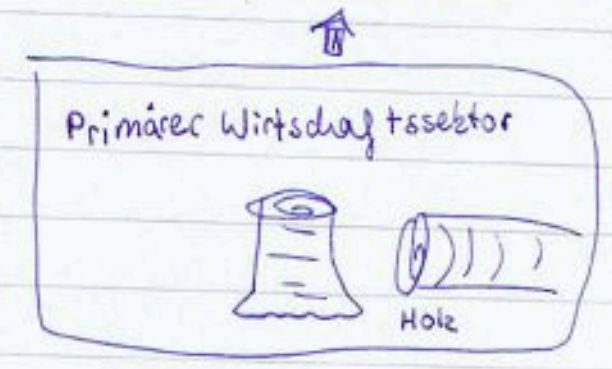 Primärer Wirtschaftssektor
Holz